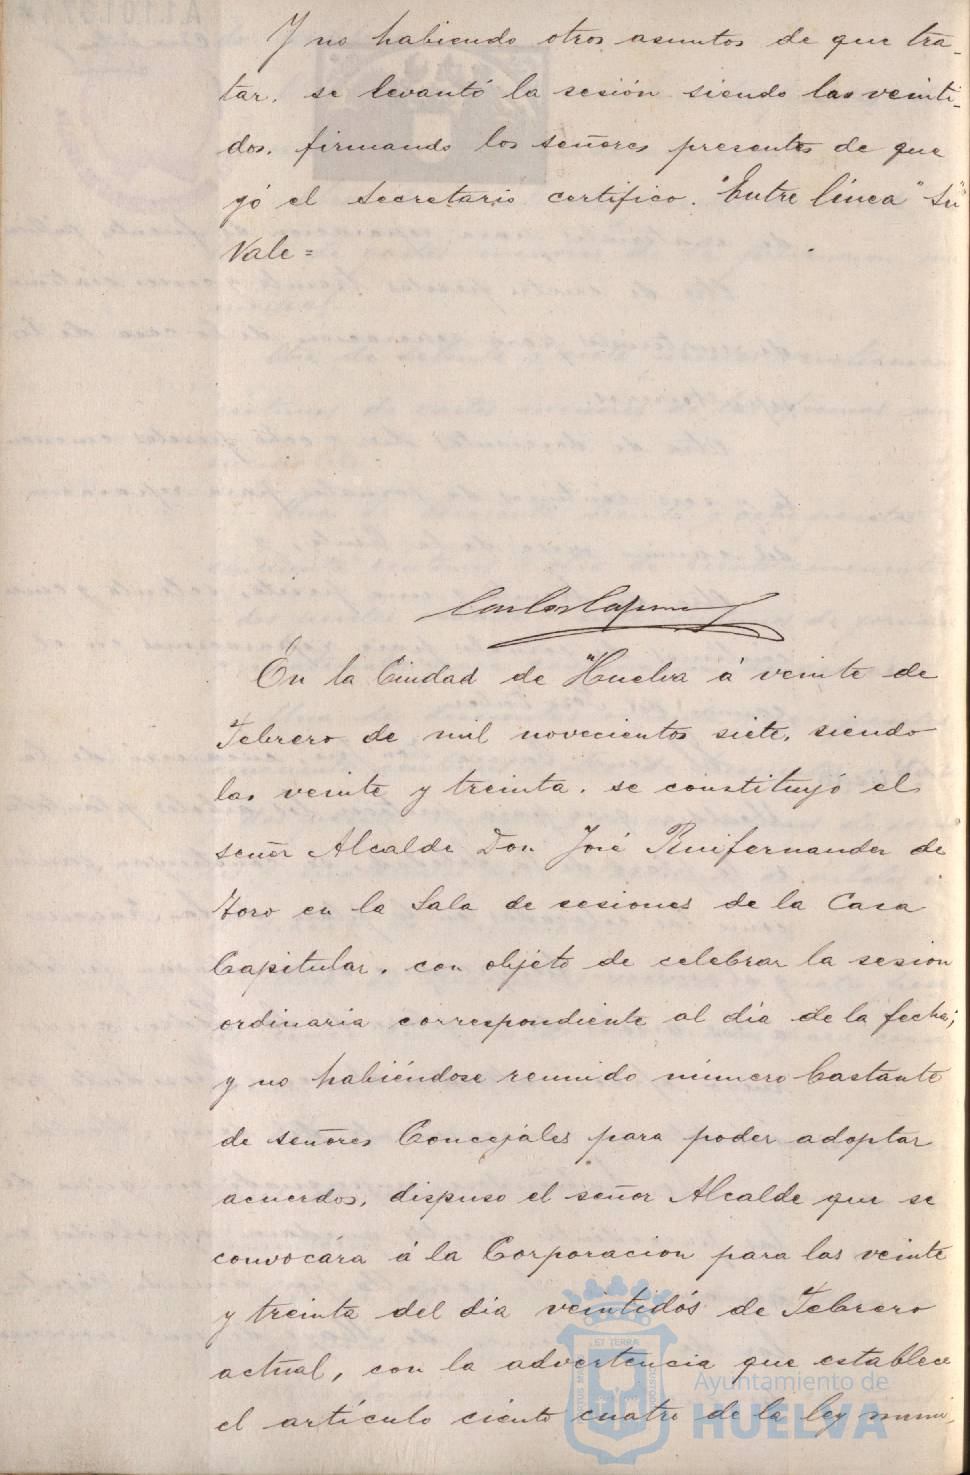 Y no habiendo otros asuntos de que tra-
tar, se levantó la sesión siendo las veinti-
dos, firmando los señores presentes de que
yó el Secretario certifico. "Entre línea" "su"
Vale=
Carlos
En la Ciudad de Huelva á veinte de
Febrero de mil novecientos siete, siendo
las veinte y treinta, se constituyó el
señor Alcalde Don José Ruifernandez de
Toro en la Sala de sesiones de la Casa
Capitular, con objeto de celebrar la sesion
ordinaria correspondiente al dia de la fecha;
y no habiéndose reunido número bastante
de señores Concejales para poder adoptar
acuerdos, dispuso el señor Alcalde que se
convocára á la Corporacion para las veinte
y treinta del dia veintidós de Febrero
actual, con la advertencia que establece
el artículo ciento cuatro de la ley muni-
Ayuntamiento de
HUELVA